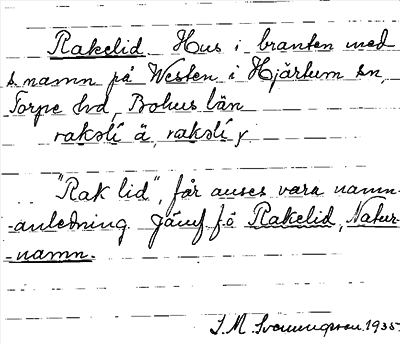 Rakelid Hus i branten med
s. namn på Westen i Hjärtum sn,
Torpe hd, Bohus län
rakslí ä, rakslí y
"Rak lid", får anses vara namn-
-anledning Jämf fö Rakelid, Natur-
-namn.
S. M. Svenungsson. 1935